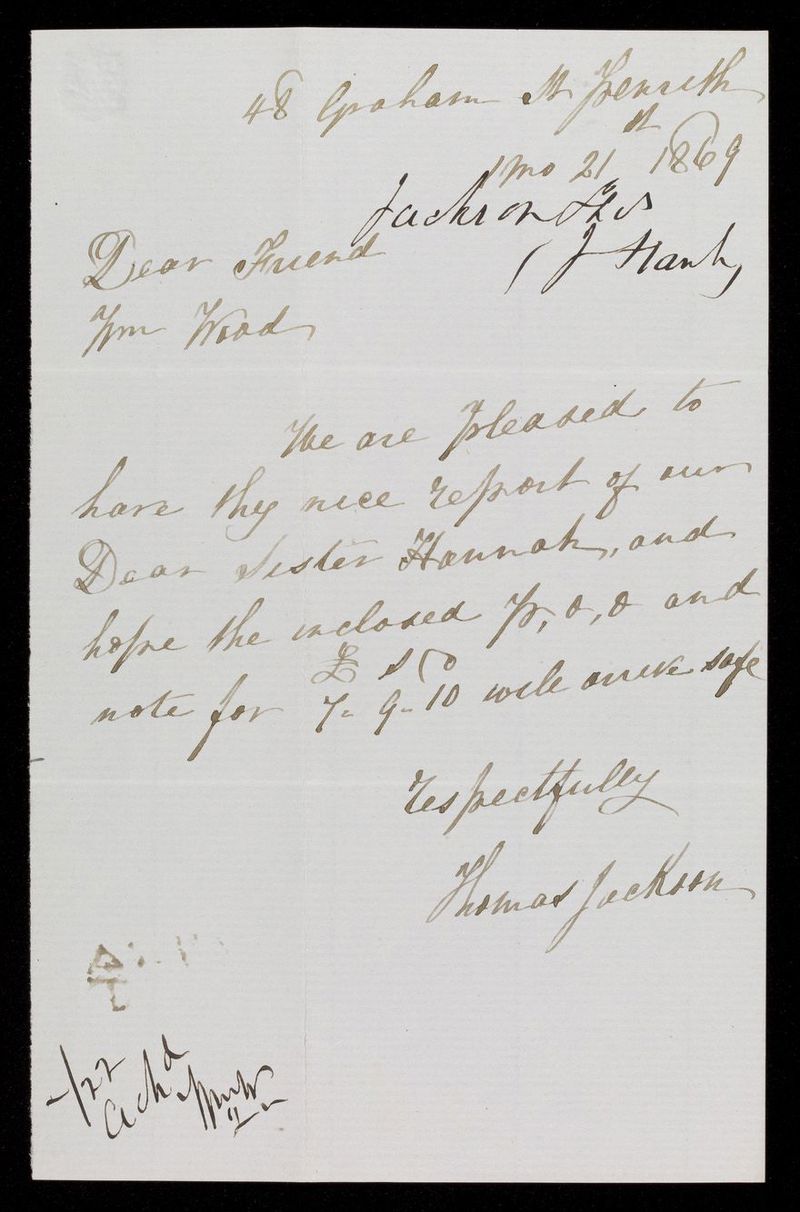 48 Graham St Penrith
1 mo 21st 1869
Jackson
Dear Friend
Wm Wood
We are pleased to
have thy nice report of our
Dear Sister Hannah, and
hope the inclosed P, O, O and
£ s D
note for 7 - 9 - 10 will arrive safe
respectfully
Thomas Jackson
1/22
Ackd